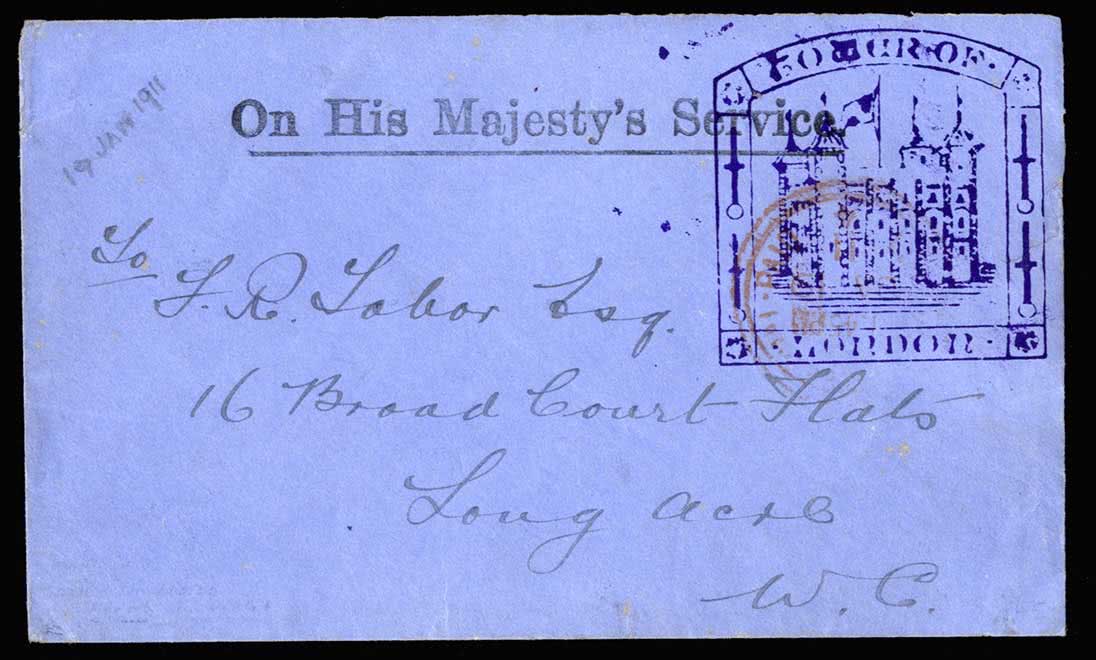 19 JAN 1911
On His Majesty's Service.
TOWER OF
LONDON
To
F. R. Tabor Esq.
16 Broad Court Flats
Long Acre
W. C.